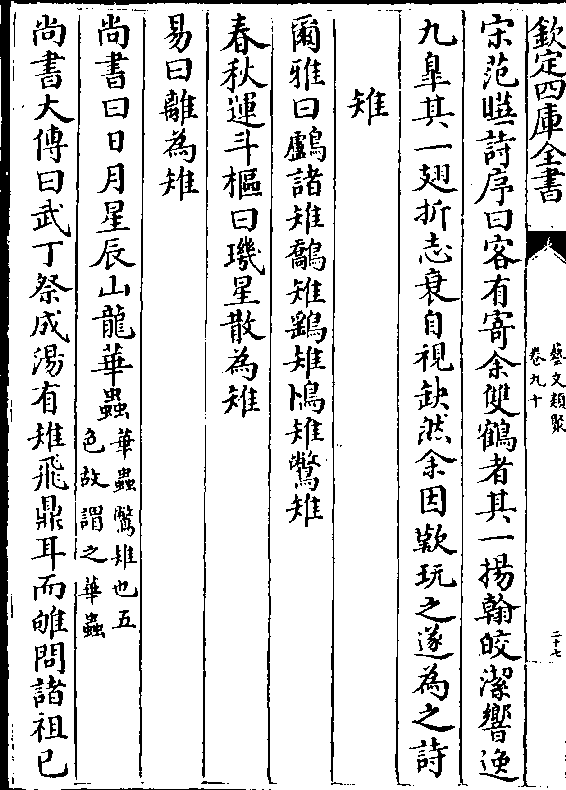 欽定四庫全書
藝文類聚
卷九十
二十七
宋范曄詩序曰客有寄余雙鶴者其一揚翰皎潔響逸
九臯其一翅折志衰自視缺然余因歎玩之遂為之詩
雉
爾雅曰鸕諸雉鷮雉鷂雉鳪雉鷩雉
春秋運斗樞曰璣星散為雉
易曰離為雉
尚書曰日月星辰山龍華蟲華蟲鷩雉也五
色故謂之華蟲
尚書大傳曰武丁祭成湯有雉飛鼎耳而雊問諸祖已